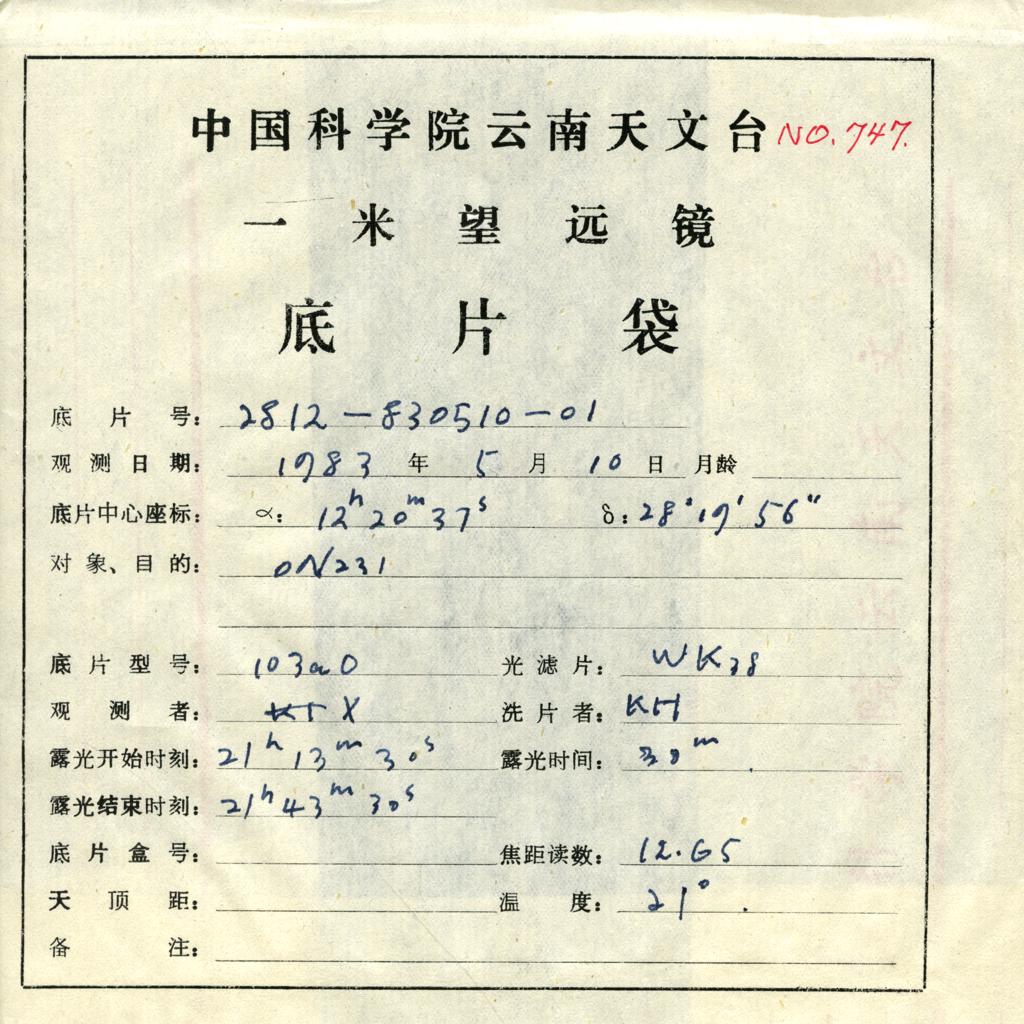 中国科学院云南天文台 NO.747.
一米望远镜
底片袋
底片号: 2812-830510-01
观测日期: 1983年5月10日 月龄
底片中心座标: α: 12h20m37s δ: 28°19′56″
对象、目的: ON231
底片型号: 103aO 光滤片: WK38
观测者: X 洗片者: KH
露光开始时刻: 21h13m30s 露光时间: 30m
露光结束时刻: 21h43m30s
底片盒号: 焦距读数: 12.65
天顶距: 温度: 21°
备注: